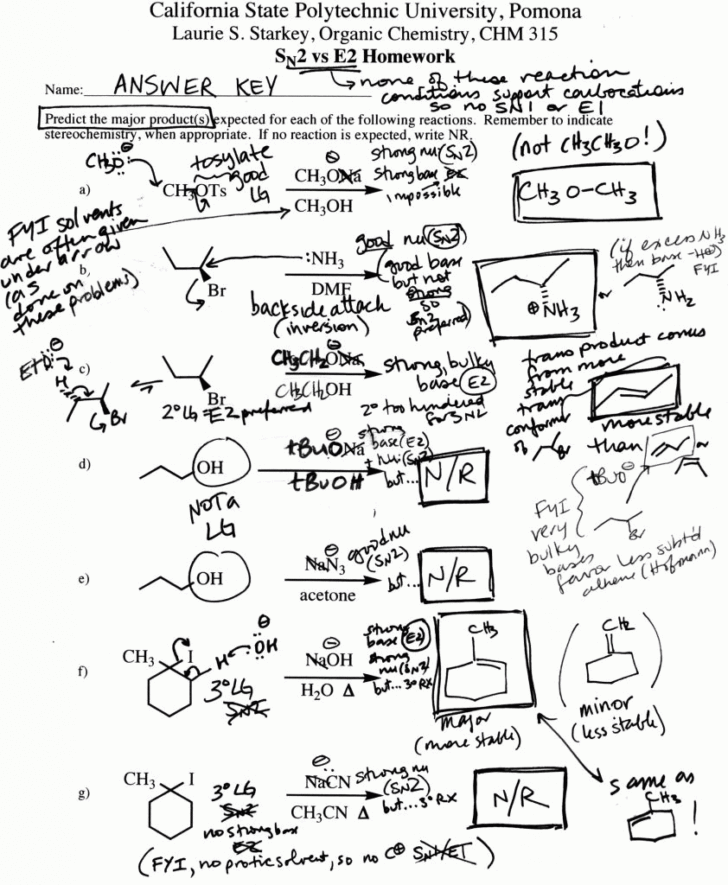 California State Polytechnic University, Pomona
Laurie S. Starkey, Organic Chemistry, CHM 315
SN2 vs E2 Homework
Name: ANSWER KEY
→ none of these reaction
conditions support carbocations
so no SN1 or E1
Predict the major product(s) expected for each of the following reactions. Remember to indicate
stereochemistry, when appropriate. If no reaction is expected, write NR.
CH3O:⊖
tosylate
good
LG
a) CH3OTs
CH3ONa
CH3OH
strong nu (SN2)
strong base E2
impossible
(not CH3CH3O!)
CH3O-CH3
FYI solvents
are often given
under arrow
(as
done on
these problems)
b)
Br
:NH3
DMF
backside attach
(inversion)
good nu (SN2)
(good base
but not
strong
so
SN2
preferred)
⊕NH3
or
NH2
(if excess NH3
then base -H⊕)
FYI
EtO:⊖
H
Br
c)
Br
2° LG = E2 preferred
CH3CH2ONa
CH3CH2OH
strong, bulky
base E2
2° too hindered
for SN2
trans product comes
from more
stable
trans
conformer
of
Br
more stable
than
or
d)
OH
NOT a
LG
tBuONa
tBuOH
strong
base (E2)
+ nu: (SN2)
but...
N/R
FYI
very
bulky
bases
favor less subt'd
alkene (Hofmann)
tBuO⊖
Br
e)
OH
NaN3
acetone
good nu
(SN2)
but...
N/R
f)
CH3
I
H
:OH⊖
3° LG
SN2
NaOH
H2O Δ
strong
base E2
strong
nu (SN2)
but... 3° RX
CH3
major
(more stable)
CH2
minor
(less stable)
same as
CH3
!
g)
CH3
I
3° LG
SN2
no strong base
E2
NaCN
CH3CN Δ
strong nu
(SN2)
but... 3° RX
N/R
(FYI, no protic solvent, so no C⊕ SN1/E1)